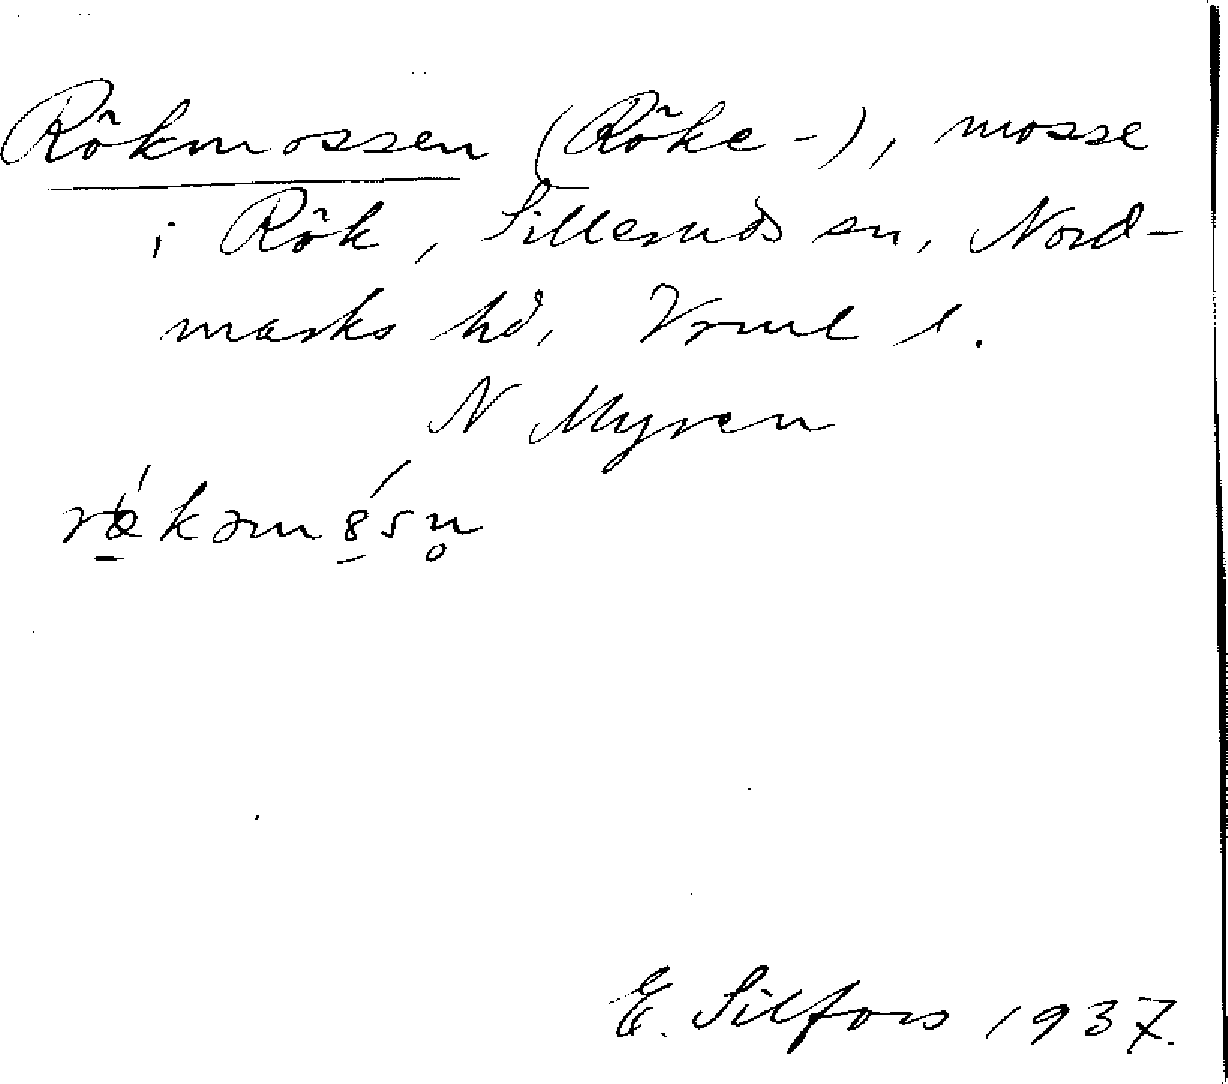 Rökmossen (Röke-), mosse
i Rök, Silleruds sn, Nord-
marks hd, Vrml l.
N Myren
E. Silfors 1937.